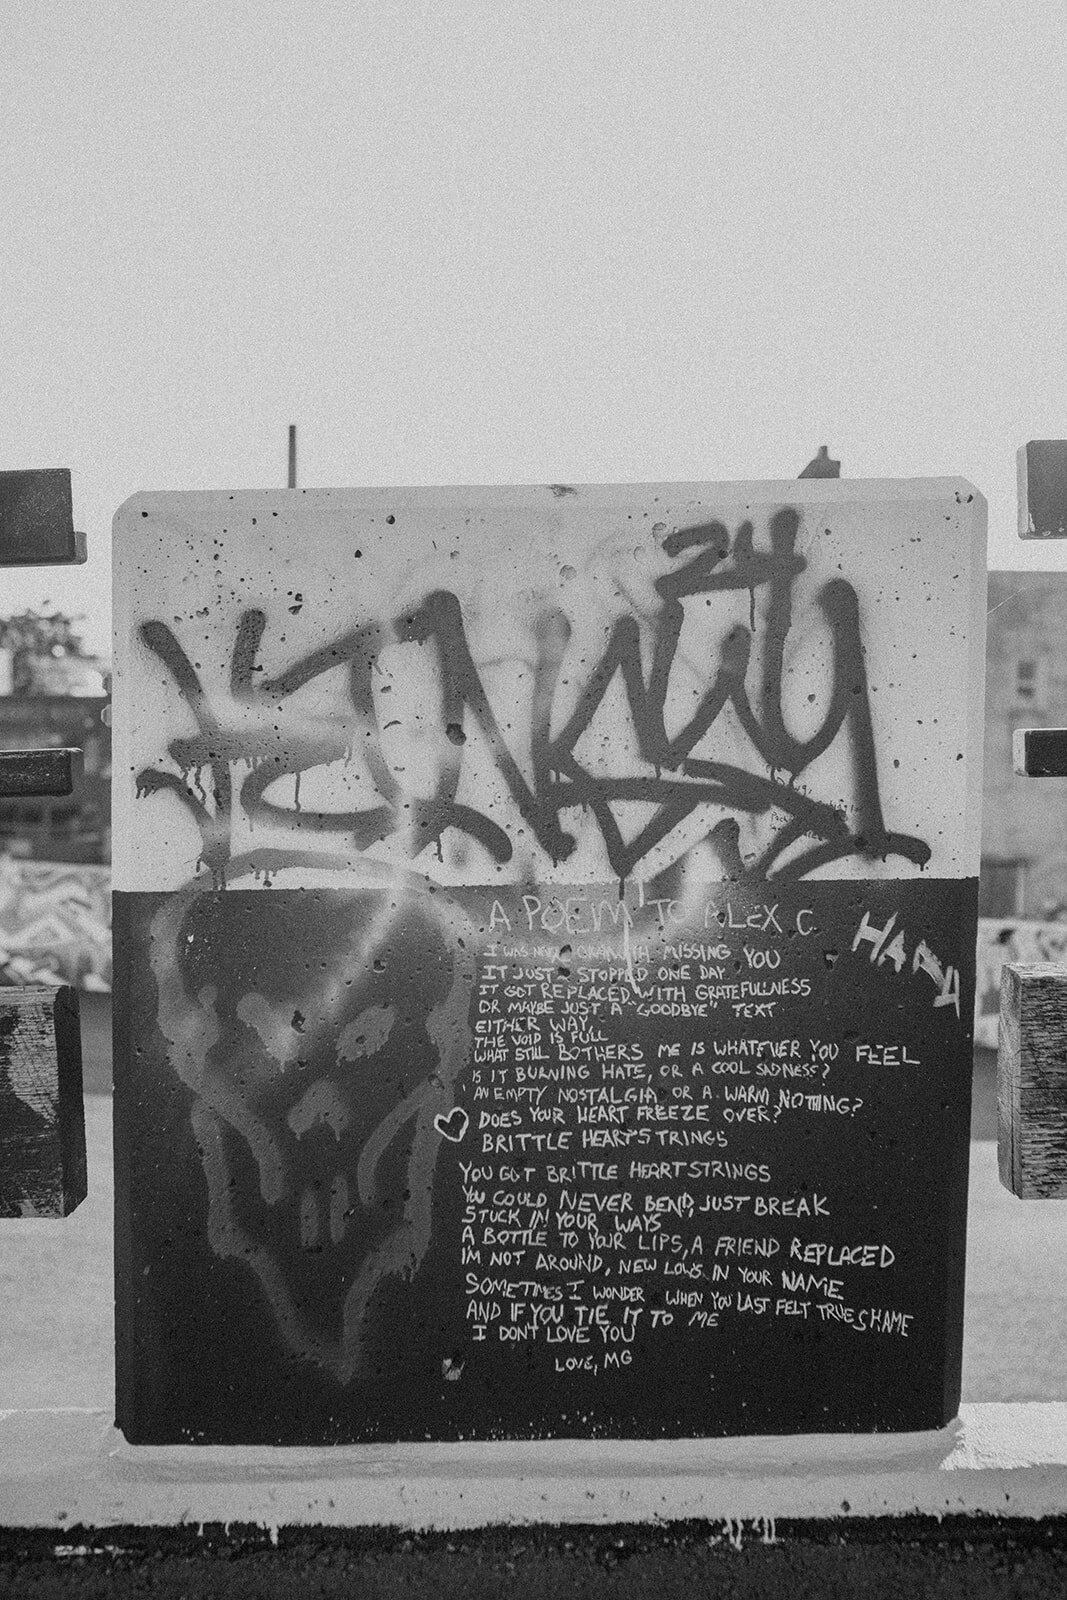 24
A POEM TO ALEX C
HANA
I WAS MISSING YOU
IT JUST STOPPED ONE DAY
IT GOT REPLACED WITH GRATEFULLNESS
OR MAYBE JUST A "GOODBYE" TEXT
EITHER WAY,
THE VOID IS FULL
WHAT STILL BOTHERS ME IS WHATEVER YOU FEEL
IS IT BURNING HATE, OR A COOL SADNESS?
AN EMPTY NOSTALGIA OR A WARM NOTHING?
DOES YOUR HEART FREEZE OVER?
BRITTLE HEARTSTRINGS
YOU GOT BRITTLE HEARTSTRINGS
YOU COULD NEVER BEND, JUST BREAK
STUCK IN YOUR WAYS
A BOTTLE TO YOUR LIPS, A FRIEND REPLACED
IM NOT AROUND, NEW LOWS IN YOUR NAME
SOMETIMES I WONDER WHEN YOU LAST FELT TRUE SHAME
AND IF YOU TIE IT TO ME
I DON'T LOVE YOU
LOVE, MG